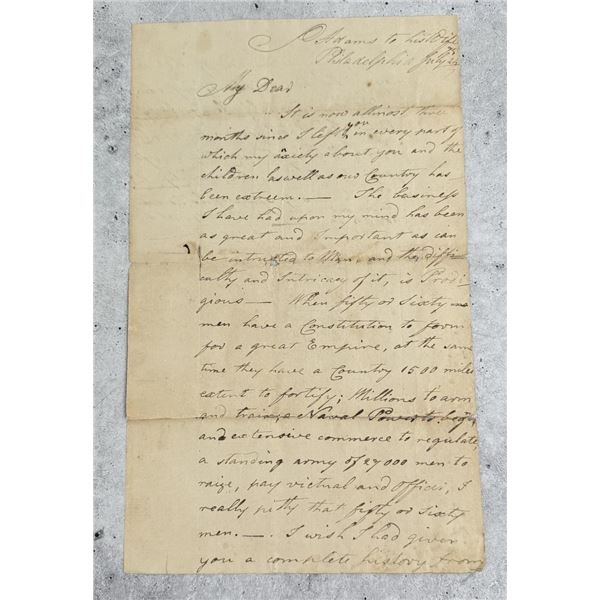 J Adams to his Wife
Philadelphia July 24
My Dear
It is now allmost three
months since I left you in every part of
which my axiety about you and the
children as well as our Country has
been extreem. — The business
I have had upon my mind has been
as great and Important as can
be intrusted to Man, and the diffi
culty and Intricacy of it, is Prodi
gious — When fifty or Sixty
men have a Constitution to form
for a great Empire, at the same
time they have a Country 1500 miles
extent to fortify; Millions to arm
and train, a Naval Power to begin,
and extensive commerce to regulate,
a standing army of 27000 men to
raize, pay victual and officer, I
really pitty that fifty or Sixty
men. — I wish I had given
you a complete history from